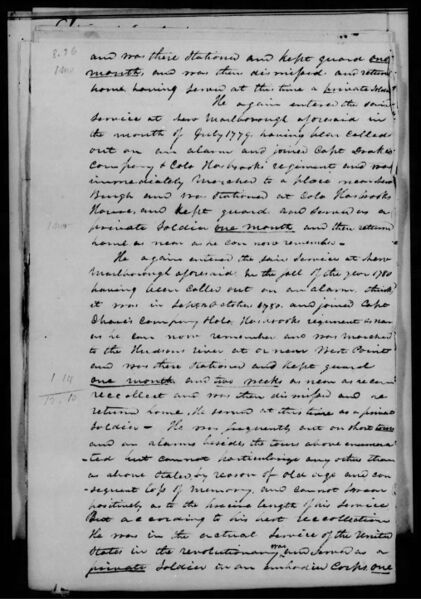 3.26
and was there stationed and kept guard one
month, and was then dismissed and return
home having served at this time a private
He again entered the said
service at New Marlborough aforesaid in
the month of July 1779. having been called
out on an alarm and joined Capt
Company & Colo Hasbrooks regiment and was
immediately marched to a place near New
Burgh and was stationed at Colo Hasbrooks
House, and kept guard and served as a
private Soldier one month and then return
home as near as he can now remember -
He again entered the said service at New
Marlborough aforesaid in the fall of the year 1780
having been called out on an alarm, think
it was in Sept or October 1780. and joined Capt
Company Colo Hasbrooks regiment as near
as he can now remember and was marched
to the Hudson river at or near West Point
and was there stationed and kept guard
one month and two weeks as near as he can
recollect and was then dismissed and re
turn home. He served at this time as a private
Soldier - He was frequently out on short tours
and on alarms besides the tours above enumera
ted but cannot particularize any other than
as above stated, by reason of old age and con
sequent loss of memory, and cannot swear
positively as to the precise length of his service
But according to his best recollection
He was in the actual service of the United
States in the revolutionary war and served as
a private Soldier in an embodied Corps one